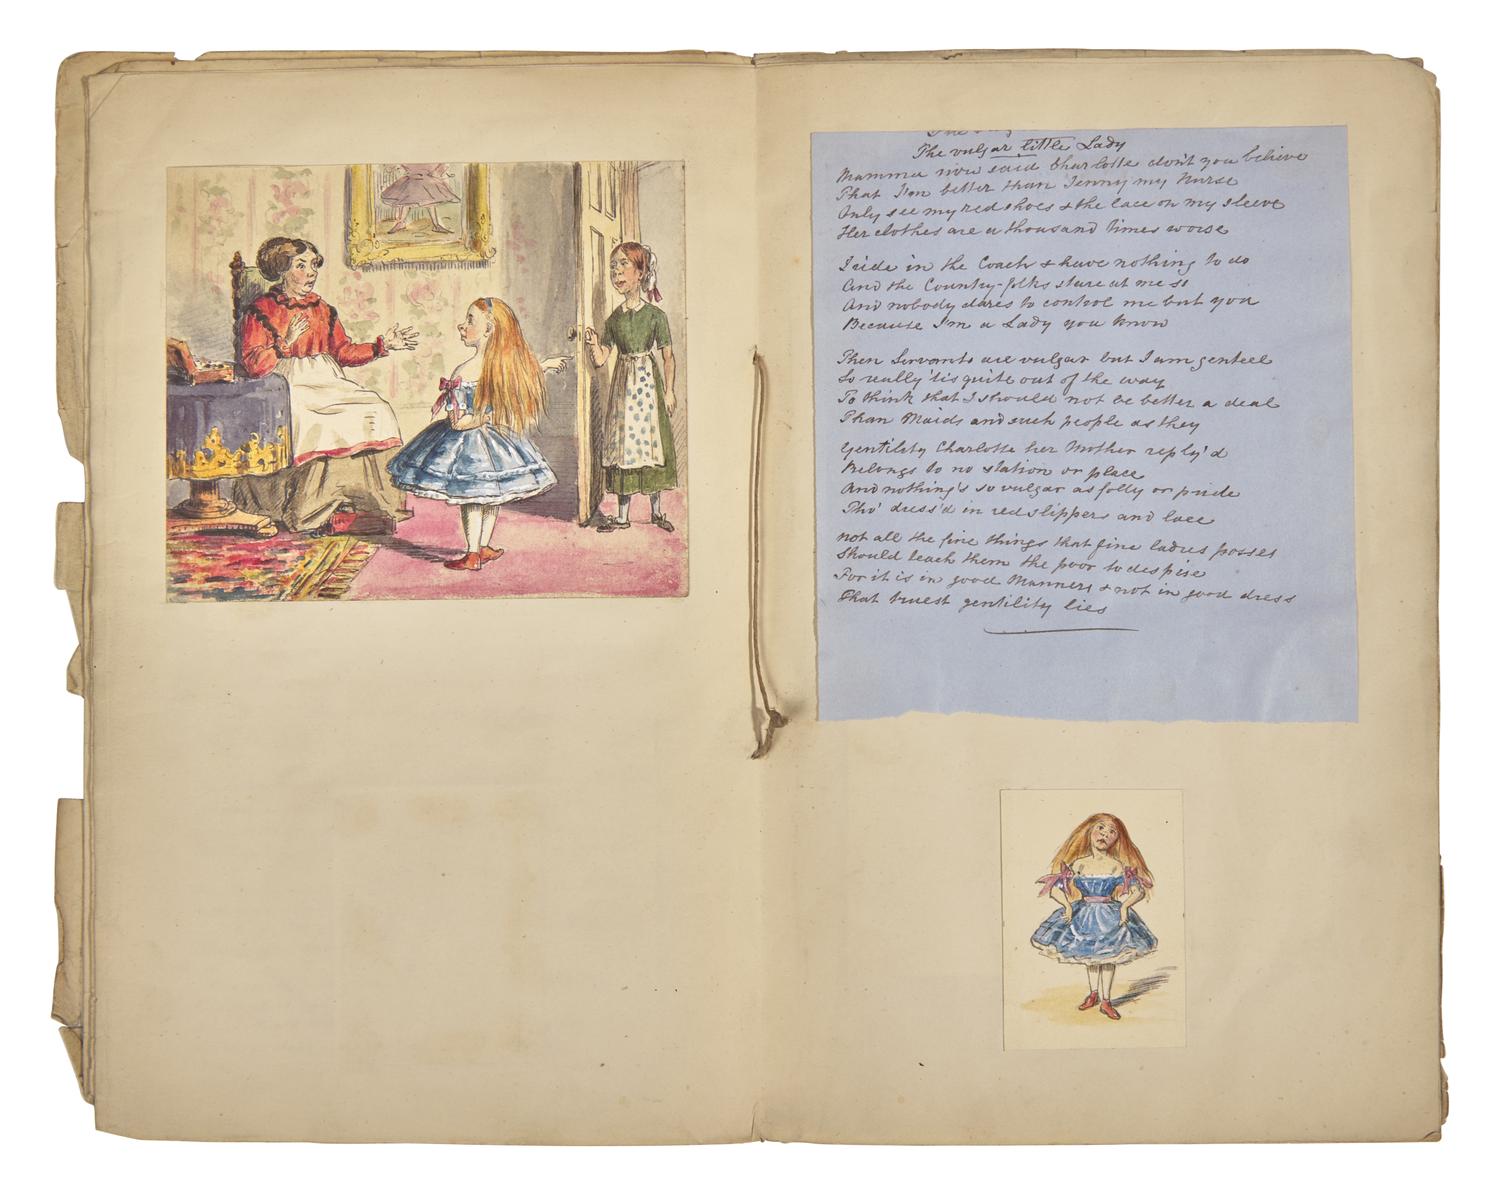 The vulgar little Lady
Mamma now said Charlotte don't you believe
That I'm better than Jenny my Nurse
Only see my red shoes & the lace on my sleeve
Her clothes are a thousand times worse
I ride in the Coach & have nothing to do
And the Country-folks stare at me so
And nobody dares to control me but you
Because I'm a Lady you know
Then Servants are vulgar but I am genteel
So really 'tis quite out of the way
To think that I should not be better a deal
Than Maids and such people as they
Gentility Charlotte her Mother reply'd
Belongs to no station or place
And nothing's so vulgar as folly or pride
Tho' dress'd in red slippers and lace
not all the fine things that fine ladies posses
Should teach them the poor to despise
For it is in good Manners & not in good dress
That truest gentility lies